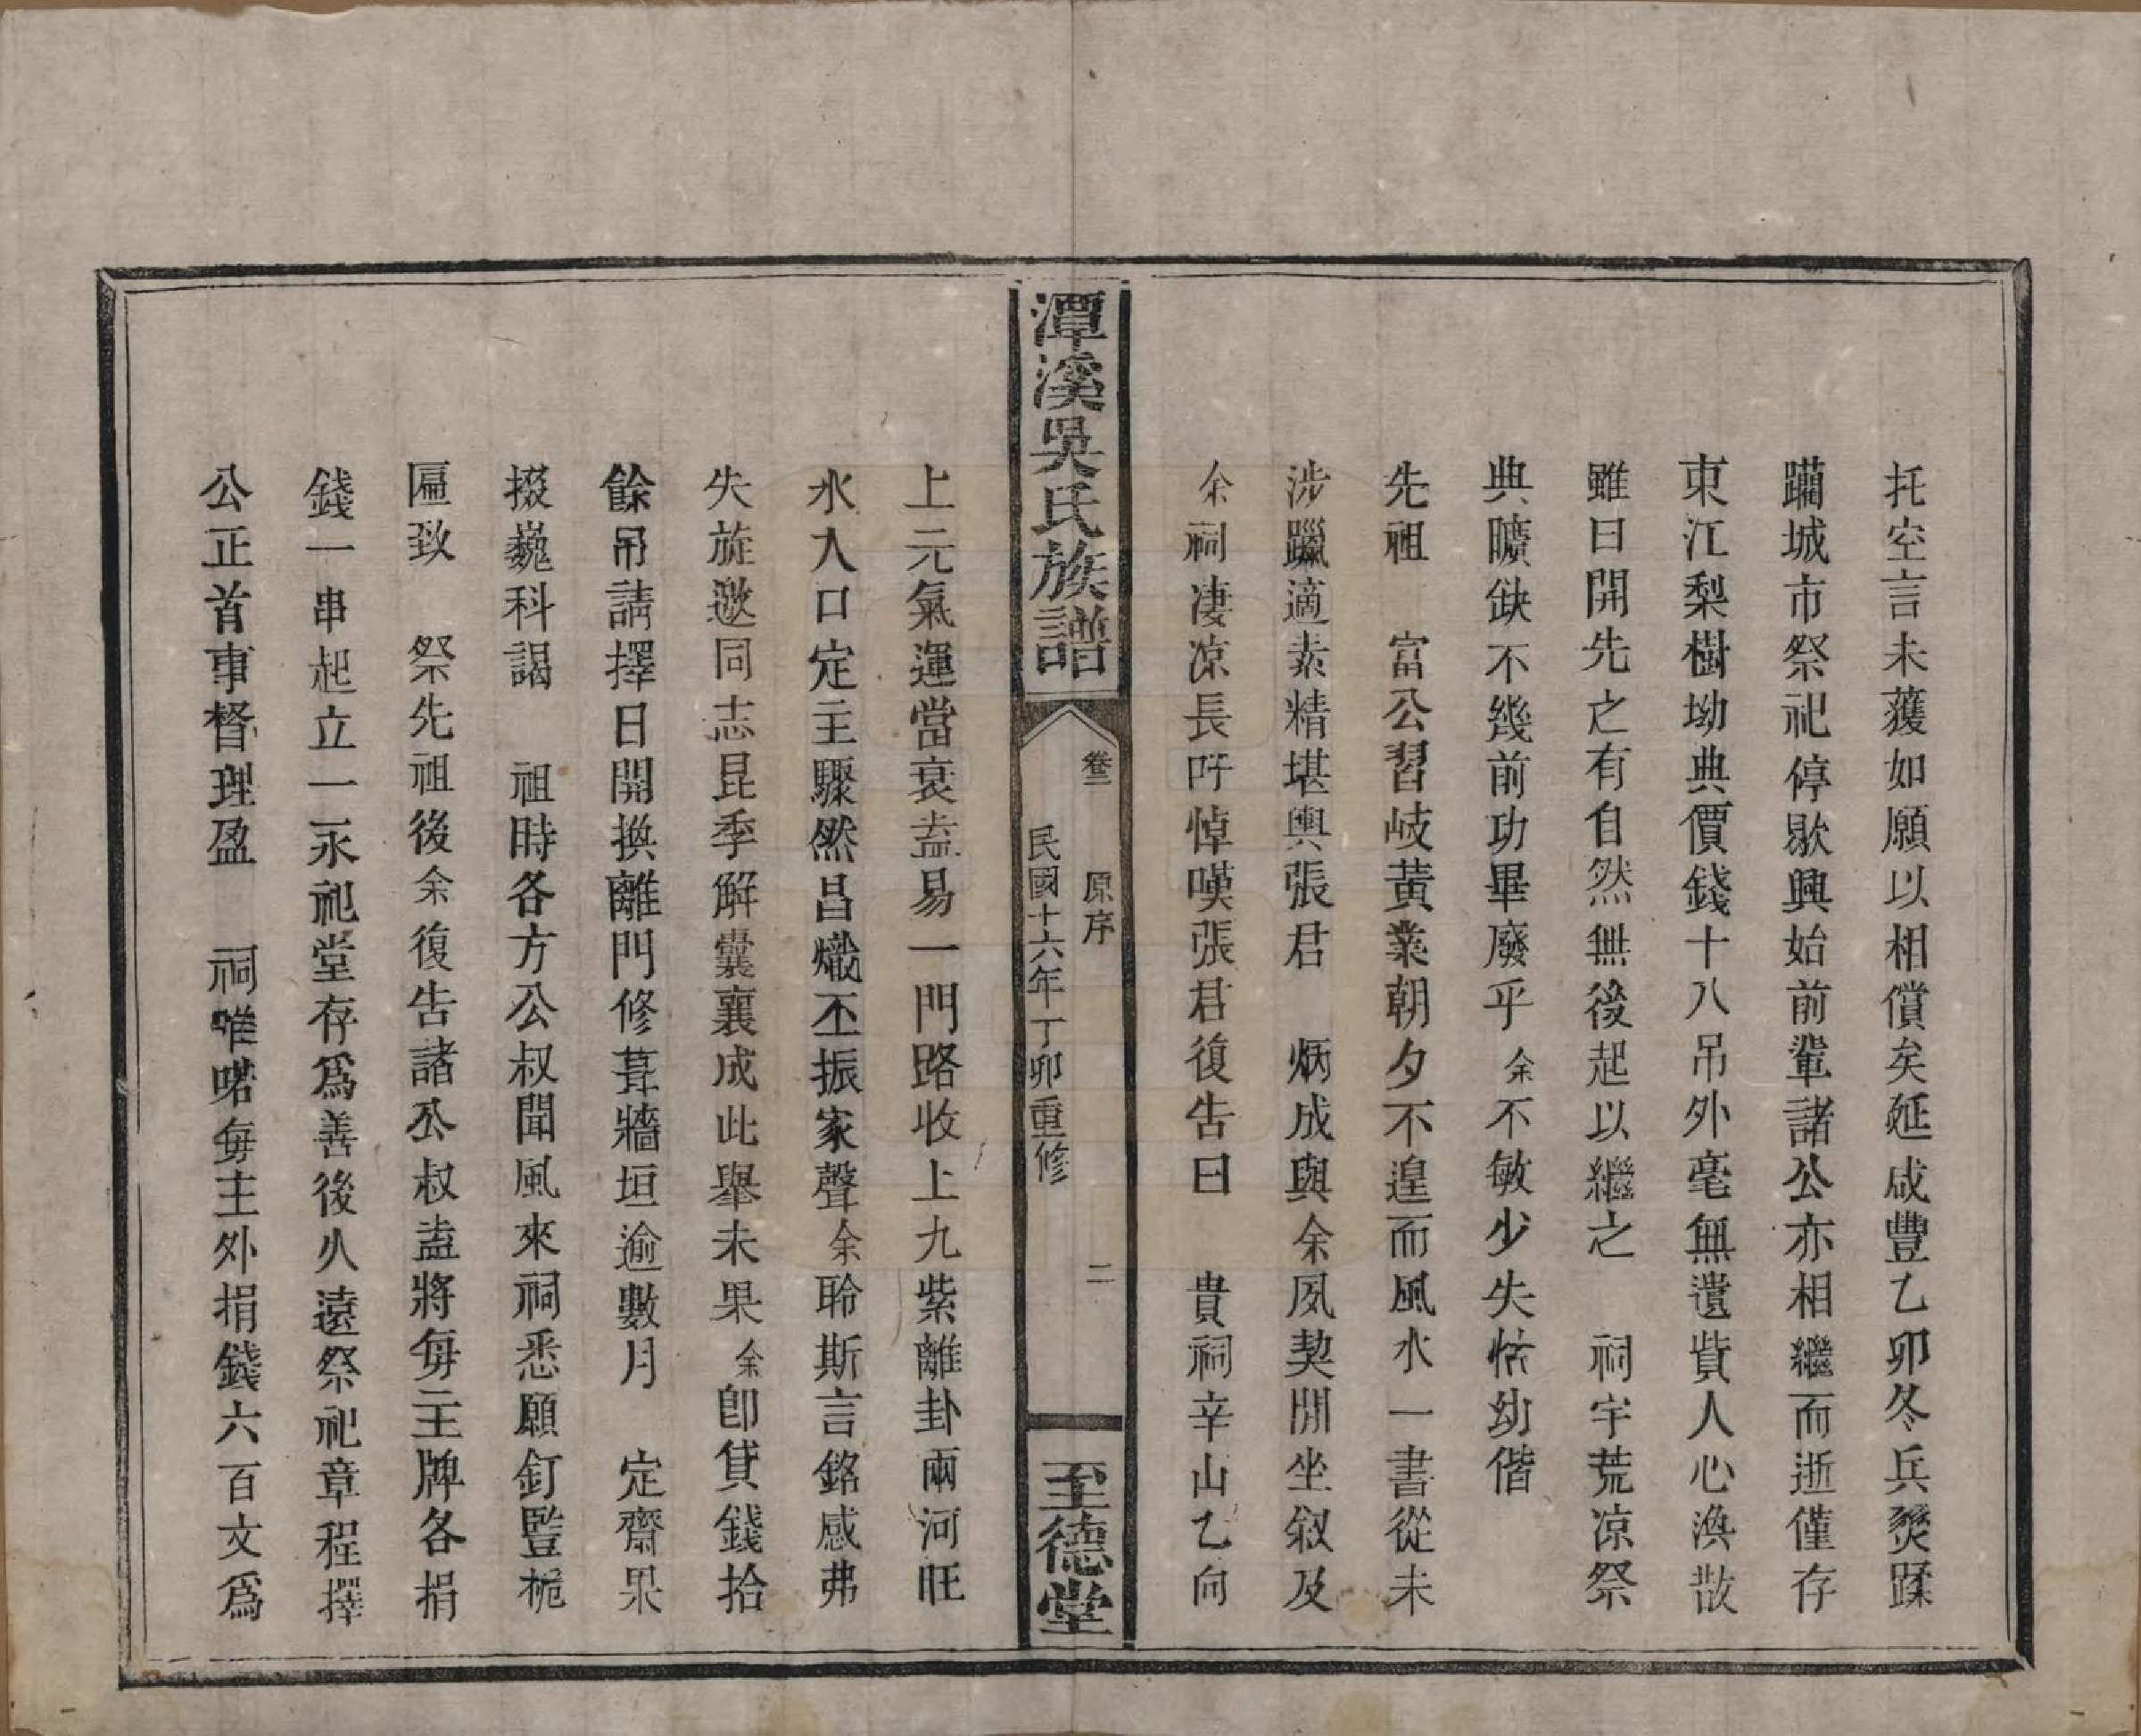 托空言未獲如願以相償矣延咸豐乙卯冬兵燹蹂
躪城市祭祀停歇興始前輩諸公亦相繼而逝僅存
東江梨樹坳典價錢十八吊外毫無遺貲人心渙散
雖曰開先之有自然無後起以繼之　祠宇荒凉祭
典曠缺不幾前功畢廢乎余不敏少失怙幼偕
先祖　富公習岐黃業朝夕不遑而風水一書從未
涉躐適素精堪輿張君　炳成與余夙契閒坐叙及
余祠凄凉長吁悼嘆張君復告曰　貴祠辛山乙向
潭溪吳氏族譜
卷三　原序　二
民國十六年丁卯重修
至德堂
上元氣運當衰盍易一門路收上九紫離卦兩河旺
水入口定主驟然昌熾丕振家聲余聆斯言銘感弗
失旋邀同志昆季解囊襄成此舉未果余卽貸錢拾
餘吊請擇日開換離門修葺牆垣逾數月　定齋果
掇巍科謁　祖時各方公叔聞風來祠悉願釘監桅
匾致　祭先祖後余復告諸公叔盍將每主牌各捐
錢一串起立一永祀堂存爲善後久遠祭祀章程擇
公正首事督理盈　祠唯喏每主外捐錢六百文爲